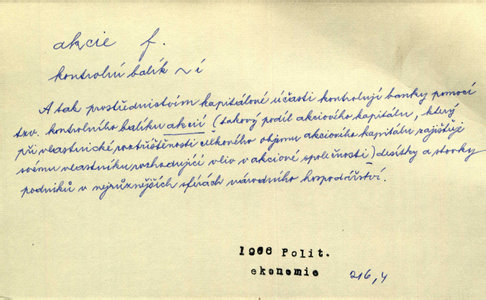 akcie f.
kontrolní balík ~í
A tak prostřednictvím kapitálové účasti kontrolují banky pomocí
tzv. kontrolního balíku akcií (takový podíl akciového kapitálu, který
při vlastnické roztříštěnosti celkového objemu akciového kapitálu zajišťuje
svému vlastníku rozhodující vliv v akciové společnosti) desítky a stovky
podniků v nejrůznějších sférách národního hospodářství.
1966 Polit.
ekonomie 216,4